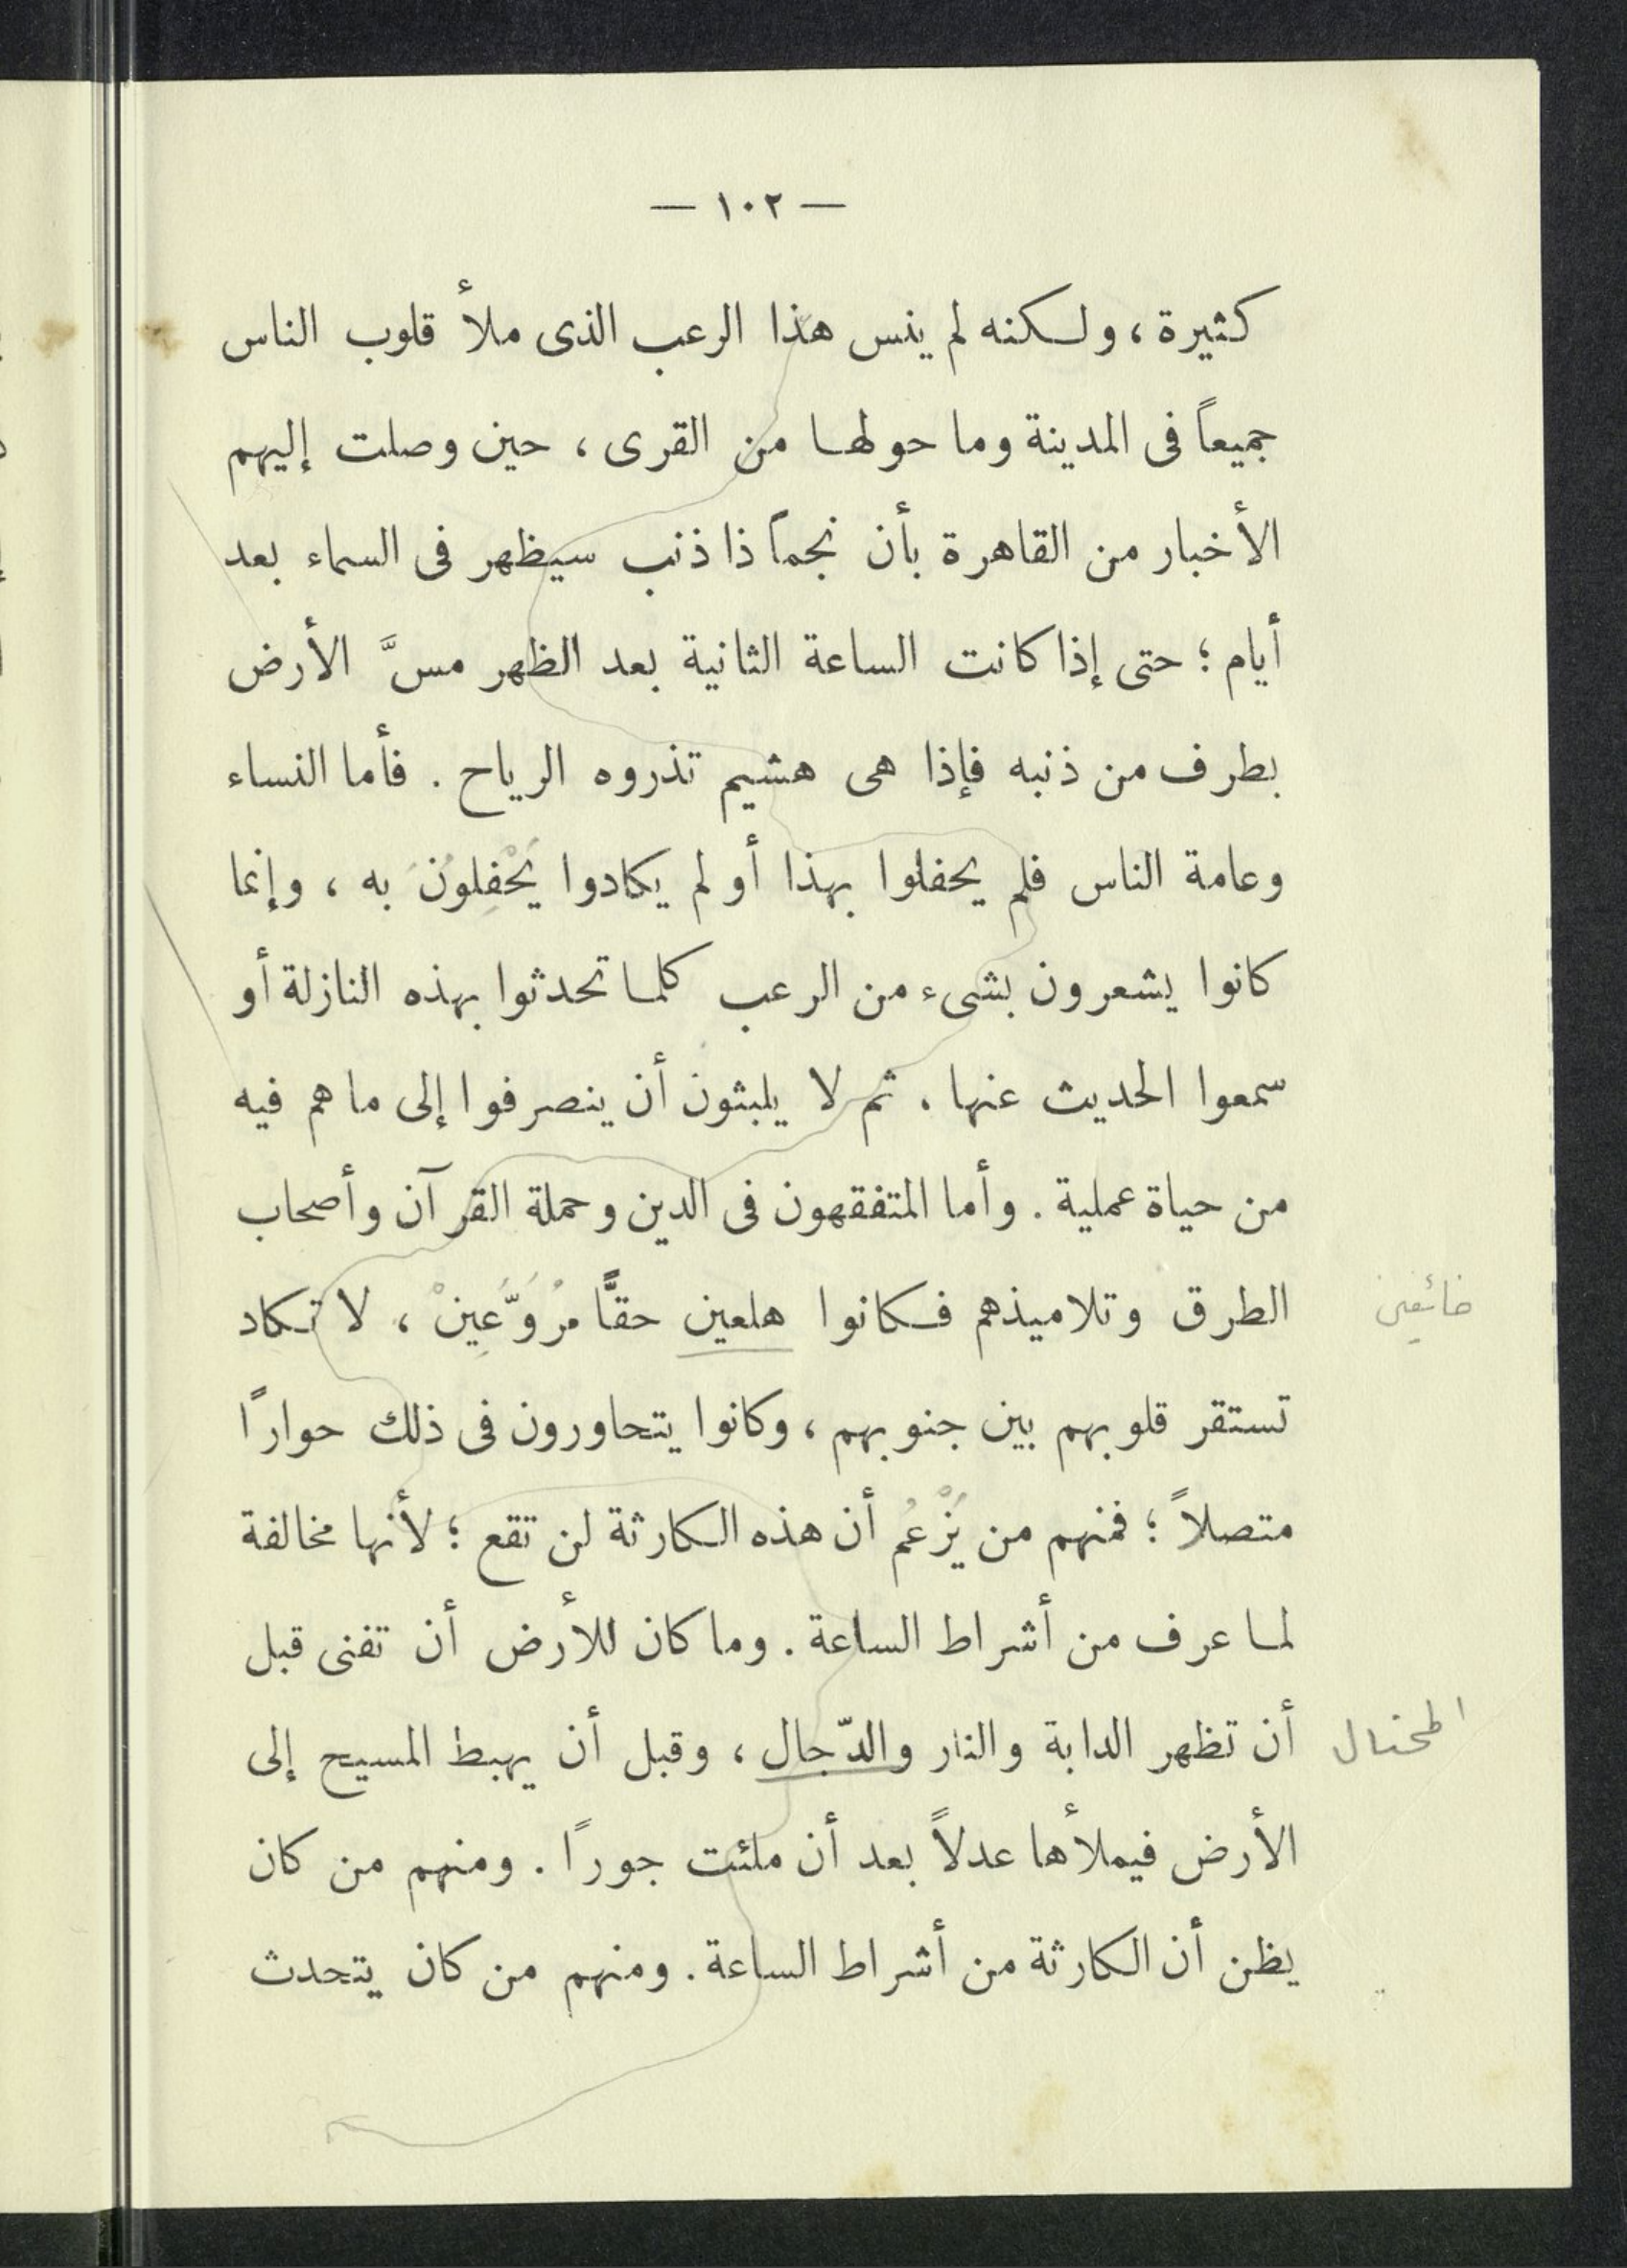 — ١٠٢ —
كثيرة ، ولكنه لم ينس هذا الرعب الذى ملأ قلوب الناس
جميعاً فى المدينة وما حولها من القرى ، حين وصلت إليهم
الأخبار من القاهرة بأن نجماً ذا ذنب سيظهر فى السماء بعد
أيام ؛ حتى إذا كانت الساعة الثانية بعد الظهر مسَّ الأرض
بطرف من ذنبه فإذا هى هشيم تذروه الرياح . فأما النساء
وعامة الناس فلم يحفلوا بهذا أو لم يكادوا يَحْفِلُونَ به ، وإنما
كانوا يشعرون بشىء من الرعب كلما تحدثوا بهذه النازلة أو
سمعوا الحديث عنها . ثم لا يلبثون أن ينصرفوا إلى ما هم فيه
من حياة عملية . وأما المتفقهون فى الدين وحملة القرآن وأصحاب
الطرق وتلاميذهم فكانوا هلعين حقًّا مُرَوَّعِينْ ، لا تكاد
خائفين
تستقر قلوبهم بين جنوبهم ، وكانوا يتحاورون فى ذلك حواراً
متصلاً ؛ فمنهم من يَزْعُم أن هذه الكارثة لن تقع ؛ لأنها مخالفة
لما عرف من أشراط الساعة . وما كان للأرض أن تفنى قبل
أن تظهر الدابة والنار والدّجال ، وقبل أن يهبط المسيح إلى
المحتال
الأرض فيملأها عدلاً بعد أن ملئت جوراً . ومنهم من كان
يظن أن الكارثة من أشراط الساعة . ومنهم من كان يتحدث